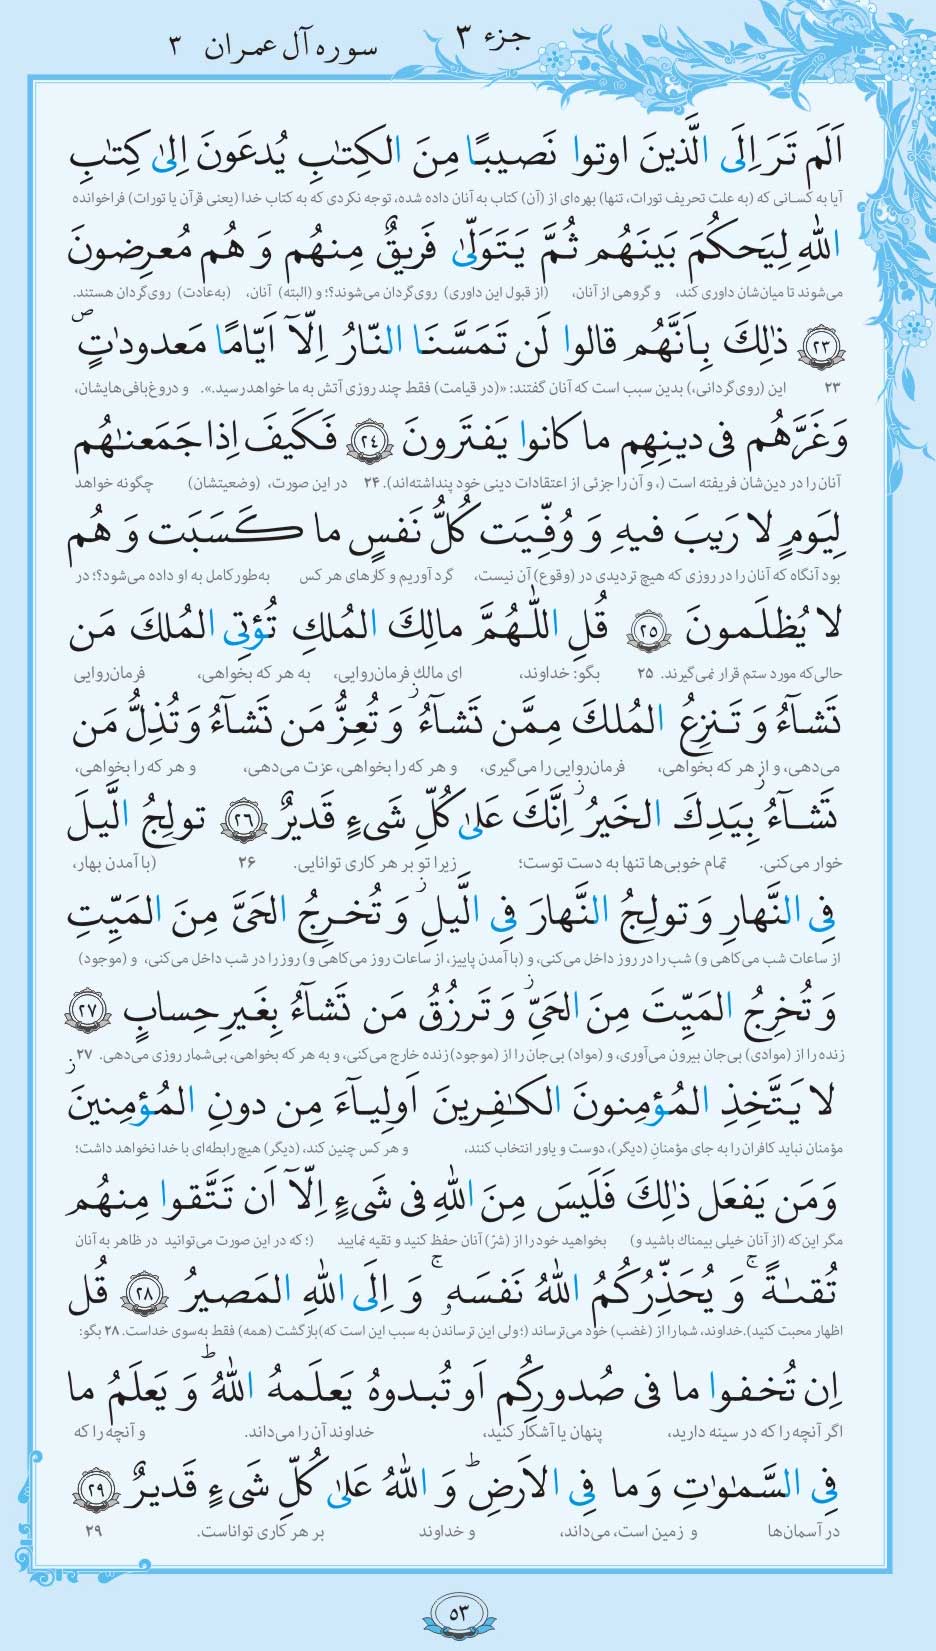 جزء ۳
سوره آل عمران ۳
اَلَم تَرَ اِلَى الَّذينَ اوتوا نَصيبًا مِنَ الكِتٰبِ يُدعَونَ اِلىٰ كِتٰبِ
آیا به کسانی که (به علت تحریف تورات، تنها) بهره‌ای از (آن) کتاب به آنان داده شده، توجه نکردی که به کتاب خدا (یعنی قرآن یا تورات) فراخوانده
اللهِ لِيَحكُمَ بَينَهُم ثُمَّ يَتَوَلّىٰ فَريقٌ مِنهُم وَ هُم مُعرِضونَ
می‌شوند تا میان‌شان داوری کند، و گروهی از آنان، (از قبول این داوری) روی‌گردان می‌شوند؟؛ و (البته) آنان، (به‌عادت) روی‌گردان هستند.
﴿۲۳﴾ ذٰلِكَ بِاَنَّهُم قالوا لَن تَمَسَّنَا النّارُ اِلّآ اَيّامًا مَعدودٰتٍ ۖ
۲۳ این (روی‌گردانی،) بدین سبب است که آنان گفتند: «(در قیامت) فقط چند روزی آتش به ما خواهد رسید.». و دروغ‌بافی‌هایشان،
وَ غَرَّهُم فى دينِهِم ما كانوا يَفتَرونَ ﴿۲۴﴾ فَكَيفَ اِذا جَمَعنٰهُم
آنان را در دین‌شان فریفته است (، و آن را جزئی از اعتقادات دینی خود پنداشته‌اند). ۲۴ در این صورت، (وضعیتشان) چگونه خواهد
لِيَومٍ لا رَيبَ فيهِ وَ وُفِّيَت كُلُّ نَفسٍ ما كَسَبَت وَ هُم
بود آنگاه که آنان را در روزی که هیچ تردیدی در (وقوع) آن نیست، گرد آوریم و کارهای هر کس به‌طور کامل به او داده می‌شود؟؛ در
لا يُظلَمونَ ﴿۲۵﴾ قُلِ اللّٰهُمَّ مالِكَ المُلكِ تُؤتِى المُلكَ مَن
حالی‌که مورد ستم قرار نمی‌گیرند. ۲۵ بگو: خداوند، ای مالك فرمان‌روایی، به هر که بخواهی، فرمان‌روایی
تَشآءُ وَ تَنزِعُ المُلكَ مِمَّن تَشآءُ ۫ وَ تُعِزُّ مَن تَشآءُ وَ تُذِلُّ مَن
می‌دهی، و از هر که بخواهی، فرمان‌روایی را می‌گیری، و هر که را بخواهی، عزت می‌دهی، و هر که را بخواهی،
تَشآءُ ز بِيَدِكَ الخَيرُ ز اِنَّكَ عَلىٰ كُلِّ شَىءٍ قَديرٌ ﴿۲۶﴾ تولِجُ الَّيلَ
خوار می‌کنی. تمام خوبی‌ها تنها به دست توست؛ زیرا تو بر هر کاری توانایی. ۲۶ (با آمدن بهار،
فِى النَّهارِ وَ تولِجُ النَّهارَ فِى الَّيلِ ز وَ تُخرِجُ الحَىَّ مِنَ المَيِّتِ
از ساعات شب می‌کاهی و) شب را در روز داخل می‌کنی، و (با آمدن پاییز، از ساعات روز می‌کاهی و) روز را در شب داخل می‌کنی، و (موجود)
وَ تُخرِجُ المَيِّتَ مِنَ الحَىِّ ز وَ تَرزُقُ مَن تَشآءُ بِغَيرِ حِسابٍ ﴿۲۷﴾
زنده را از (موادی) بی‌جان بیرون می‌آوری، و (مواد) بی‌جان را از (موجود) زنده خارج می‌کنی، و به هر که بخواهی، بی‌شمار روزی می‌دهی. ۲۷
لا يَتَّخِذِ المُؤمِنونَ الكٰفِرينَ اَولِيآءَ مِن دونِ المُؤمِنينَ ز
مؤمنان نباید کافران را به جای مؤمنانِ (دیگر)، دوست و یاور انتخاب کنند، و هر کس چنین کند، (دیگر) هیچ رابطه‌ای با خدا نخواهد داشت؛
وَ مَن يَفعَل ذٰلِكَ فَلَيسَ مِنَ اللهِ فى شَىءٍ اِلّآ اَن تَتَّقوا مِنهُم
مگر این‌که (از آنان خیلی بیمناك باشید و) بخواهید خود را از (شرّ) آنان حفظ کنید و تقیه نمایید (؛ که در این صورت می‌توانید در ظاهر به آنان
تُقىٰةً ۚ وَ يُحَذِّرُكُمُ اللهُ نَفسَهو ۚ وَ اِلَى اللهِ المَصيرُ ﴿۲۸﴾ قُل
اظهار محبت کنید). خداوند، شما را از (غضب) خود می‌ترساند (؛ ولی این ترساندن به سبب این است که) بازگشت (همه) فقط به‌سوی خداست. ۲۸ بگو:
اِن تُخفوا ما فى صُدورِكُم اَو تُبدوهُ يَعلَمهُ اللهُ ط وَ يَعلَمُ ما
اگر آنچه را که در سینه دارید، پنهان یا آشکار کنید، خداوند آن را می‌داند. و آنچه را که
فِى السَّمٰوٰتِ وَ ما فِى الاَرضِ ط وَ اللهُ عَلىٰ كُلِّ شَىءٍ قَديرٌ ﴿۲۹﴾
در آسمان‌ها و زمین است، می‌داند، و خداوند بر هر کاری تواناست. ۲۹
۵۳